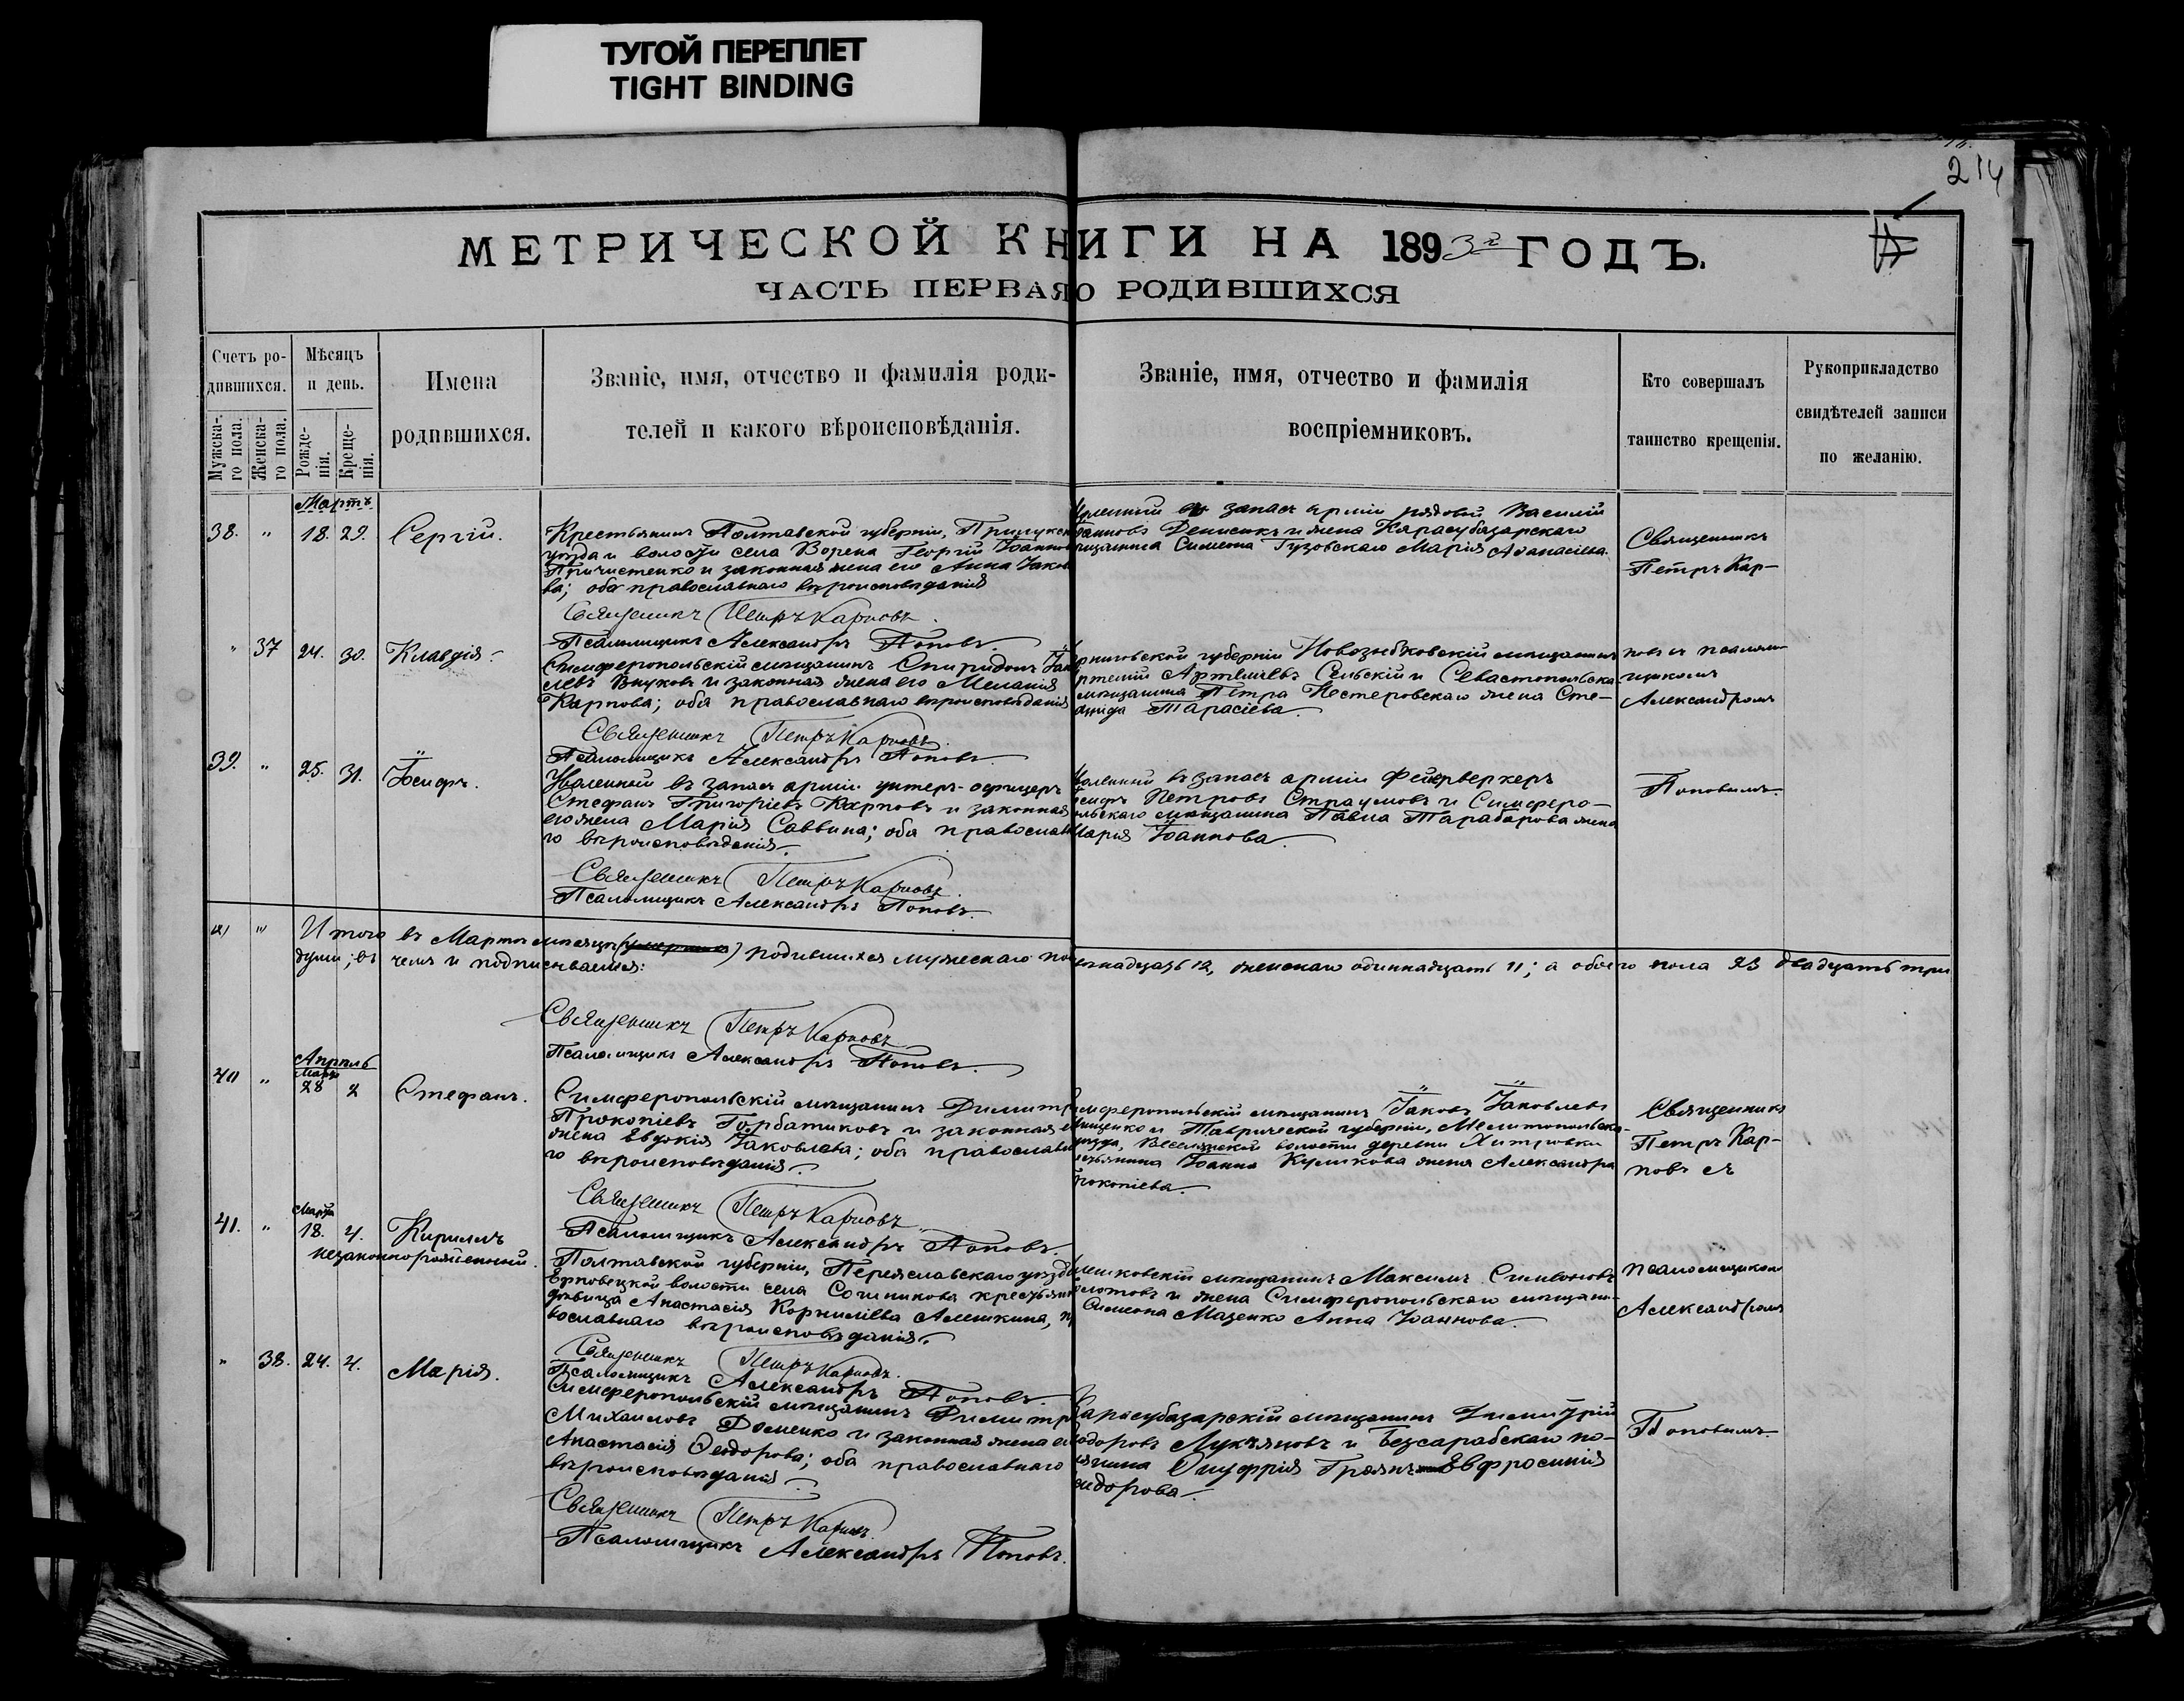 ТУГОЙ ПЕРЕПЛЕТ
TIGHT BINDING
214
МЕТРИЧЕСКОЙ КНИГИ НА 1893й ГОДЪ.
ЧАСТЬ ПЕРВАЯ О РОДИВШИХСЯ
Счетъ ро-
дившихся.
Мужска-
го пола.
Женска-
го пола.
Мѣсяцъ
и день.
Рожде-
нія.
Креще-
нія.
Имена
родившихся.
Званіе, имя, отчество и фамилія роди-
телей и какого вѣроисповѣданія.
Званіе, имя, отчество и фамилія
воспріемниковъ.
Кто совершалъ
таинство крещенія.
Рукоприкладство
свидѣтелей записи
по желанію.
Мартъ
38. " 18. 29. Сергій.
Крестьянинъ Полтавской губерніи,
уѣзда и волости села Ворена Георгій Іоаннов
Причистенко и законная жена его Анна Іаков
ва; оба православнаго вѣроисповѣданія
Священникъ Петръ Карповъ.
Псаломщикъ Александръ Поповъ.
въ запасъ арміи рядовой Василій
Денисюкъ и жена Карасубазарскаго
Симеона Гузовскаго Марія Аѳанасіева.
Священникъ
Петръ Кар-
" 37 24. 30. Клавдія.
Симферопольскій мѣщанинъ Спиридонъ Іак
левъ Внуковъ и законная жена его Меланія
Карпова; оба православнаго вѣроисповѣданія
Священникъ Петръ Карповъ.
Псаломщикъ Александръ Поповъ.
рниговской губерніи Новозыбковскій мѣщанинъ
ртемій Артемьевъ Сельскій и Севастопольска
мѣщанина Петра Нестеровскаго жена Сте-
анида Тарасіева.
повъ съ псалом-
щикомъ
Александромъ
39. " 25. 31. Іосифъ.
Уволенный въ запасъ арміи унтеръ-офицеръ
Стефанъ Григоріевъ Карповъ и законная
его жена Марія Саввина; оба православн
го вѣроисповѣданія.
Священникъ Петръ Карповъ.
Псаломщикъ Александръ Поповъ.
воленный въ запасъ арміи фейерверкеръ
осифъ Петровъ Страумовъ и Симферо-
ольскаго мѣщанина Павла Тарабарова жена
Марія Іоаннова.
Поповымъ.
Итого въ Мартѣ мѣсяцѣ родившихся мужескаго по двѣнадцать 12, женскаго одиннадцать 11; а обоего пола 23 двадцать три
души; въ чемъ и подписываемся:
Священникъ Петръ Карповъ
Псаломщикъ Александръ Поповъ.
Апрѣль
Марта
40 " 28 2 Стефанъ.
Симферопольскій мѣщанинъ Димитр
Прокопіевъ Горбатиковъ и законная е
жена Евдокія Іаковлева; оба православн
го вѣроисповѣданія.
Священникъ Петръ Карповъ
Псаломщикъ Александръ Поповъ.
имферопольскій мѣщанинъ Іаковъ Іаковлевъ
и Таврической губерніи, Мелитопольска-
уѣзда, Веселянской волости деревни Хитровки
естьянина Іоанна Куликова жена Александра
рокопіева.
Священникъ
Петръ Кар-
повъ съ
Марта
41. " 18. 4. Кириллъ
незаконнорожденный.
Полтавской губерніи, Переяславскаго уѣзда
Ерковецкой волости села Сошникова крестьян
дѣвица Анастасія Корниліева Алешкина, п
вославнаго вѣроисповѣданія.
Священникъ Петръ Карповъ.
Псаломщикъ Александръ Поповъ.
лешковскій мѣщанинъ Максимъ Симеоновъ
олотовъ и жена Симферопольскаго мѣщани-
Симеона Маценко Анна Іоаннова.
псаломщикомъ
Александромъ
" 38. 24. 4. Марія.
Симферопольскій мѣщанинъ Димитр
Михаиловъ Доменко и законная жена е
Анастасія Ѳеодорова; оба православнаго
вѣроисповѣданія.
Священникъ Петръ Карповъ.
Псаломщикъ Александръ Поповъ.
Карасубазарскій мѣщанинъ Димитрій
одоровъ Лукьяновъ и Бессарабскаго по-
Онуфрія Евфросинія
одорова.
Поповымъ.